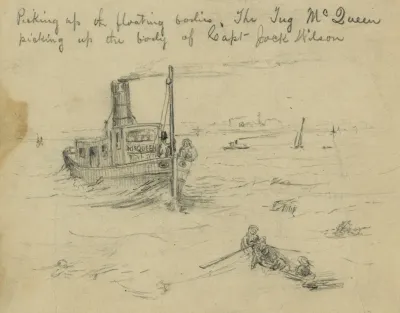 Picking up the floating bodies. The Tug McQueen
picking up the body of Capt Jack Wilson
McQUEEN